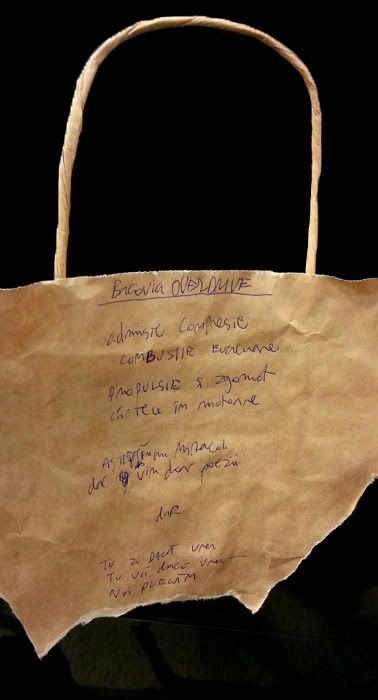 Bacovia OVERDRIVE
admisie compresie
COMBUSTIE EVACUARE
PROPULSIE și zgomot
cântece în motoare
AȘTEPTĂM MIRACOL
dar vin doar poezii
daR
TU ZI DACĂ VREI
TU VII DACĂ VREI
Noi PLECĂM